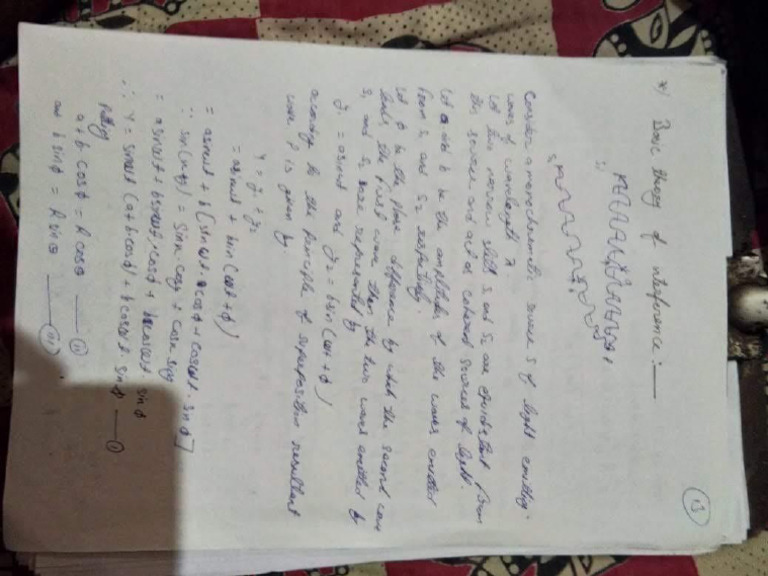 13
*) Basic theory of interference :—
S1
S2
Consider a monochromatic source S of light emitting
waves of wavelength λ
Let two narrow slits S1 and S2 are equidistant from
the source and act as coherent sources of light.
Let a and b be the amplitudes of the waves emitted
from S1 and S2 respectively.
Let ϕ be the phase difference by which the second wave
leads the first wave then the two waves emitted by
S1 and S2 are represented by
y1 = a sinωt and y2 = b sin(ωt + ϕ)
according to the principle of superposition resultant
wave P is given by,
Y = y1 + y2
= a sinωt + b sin(ωt + ϕ)
= a sinωt + b[sinωt·cosϕ + cosωt·sinϕ]
∵ sin(x+y) = sinx·cosy + cosx·siny
= a sinωt + b sinωt·cosϕ + b cosωt·sinϕ
∴ Y = sinωt (a + b·cosϕ) + b cosωt·sinϕ — (i)
Putting
a + b·cosϕ = R cosθ — (ii)
and b sinϕ = R sinθ — (iii)